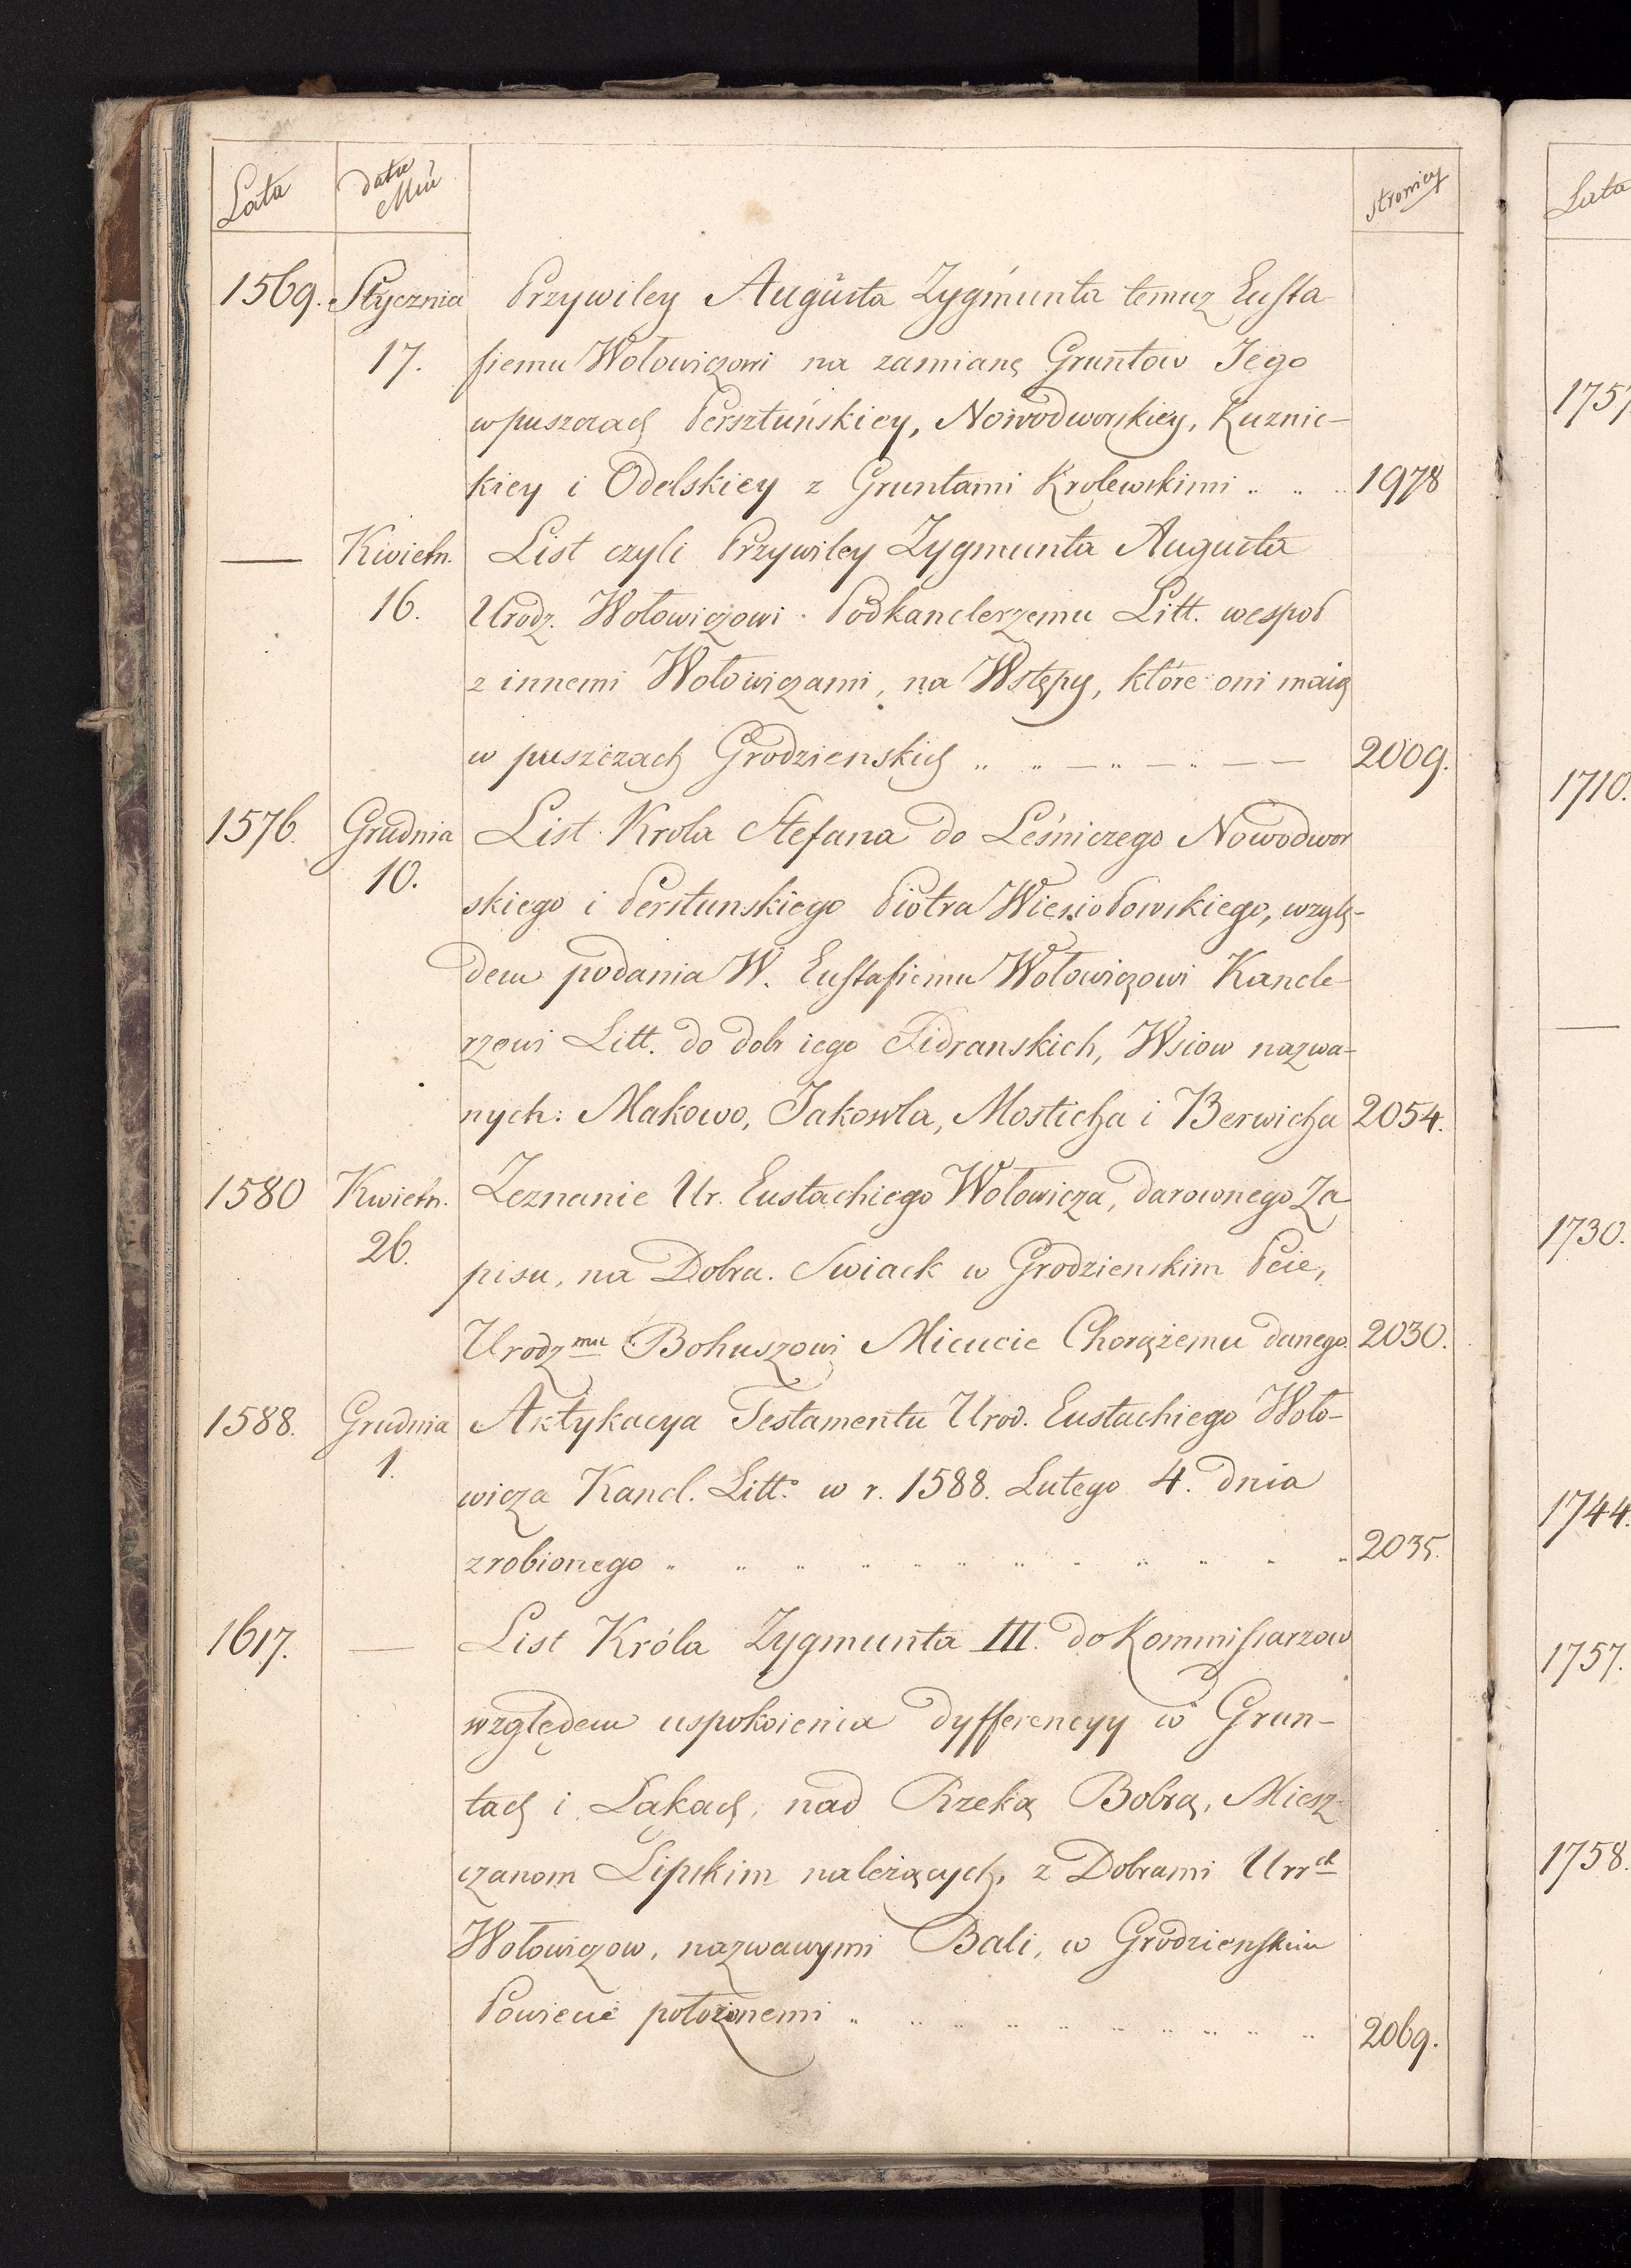 Lata
datu
Mia
stronicy
1569. Stycznia Przywiley Augusta Zygmunta temuz Eusta
17. fiemu Wołowiczowi na zamianę Gruntow Jego
w puszczach Persztuńskiey, Nowodworskiey, Kuznic-
kiey i Odelskiey z Gruntami Krolewskimi .. .. .. 1978
— Kwietn. List czyli Przywiley Zygmunta Augusta
16. Urodz. Wołowiczowi Podkanclerzemu Litt. wespoł
z innemi Wołowiczami, na Wstępy, które oni maią
w puszczach Grodzienskich .. .. — .. — .. — — 2009.
1576. Grudnia List Krola Stefana do Leśniczego Nowodwor
10. skiego i Perstunskiego Piotra Wiesiołowskiego, wzglę-
dem podania W. Eustafiemu Wołowiczowi Kancle-
rzowi Litt. do dobr iego Sidranskich, Wsiow nazwa-
nych: Makowo, Jakowla, Mosticha i Berwicha 2054.
1580 Kwietn. Zeznanie Ur. Eustachiego Wołowicza, darownego Za
26. pisu, na Dobra Swiack w Grodzienskim Pcie,
Urodz mu Bohuszowi Micucie Chorążemu danego. 2030.
1588. Grudnia Aktykacya Testamentu Urod. Eustachiego Woło-
1. wicza Kancl. Litt. w r. 1588. Lutego 4. dnia
zrobionego .. .. .. .. .. .. .. .. .. .. .. .. 2035.
1617. — List Króla Zygmunta III. do Kommissarzow
względem uspokoienia dyfferencyy w Grun-
tach i Łąkach, nad Rzeką Bobrą, Miesz-
czanom Lipskim należących, z Dobrami Urr ch
Wołowiczow, nazwawymi Bali, w Grodzienskim
Powiecie położonemi .. .. .. .. .. .. .. .. .. .. 2069.
Lata
1757
1710.
—
1730.
1744.
1757.
1758.